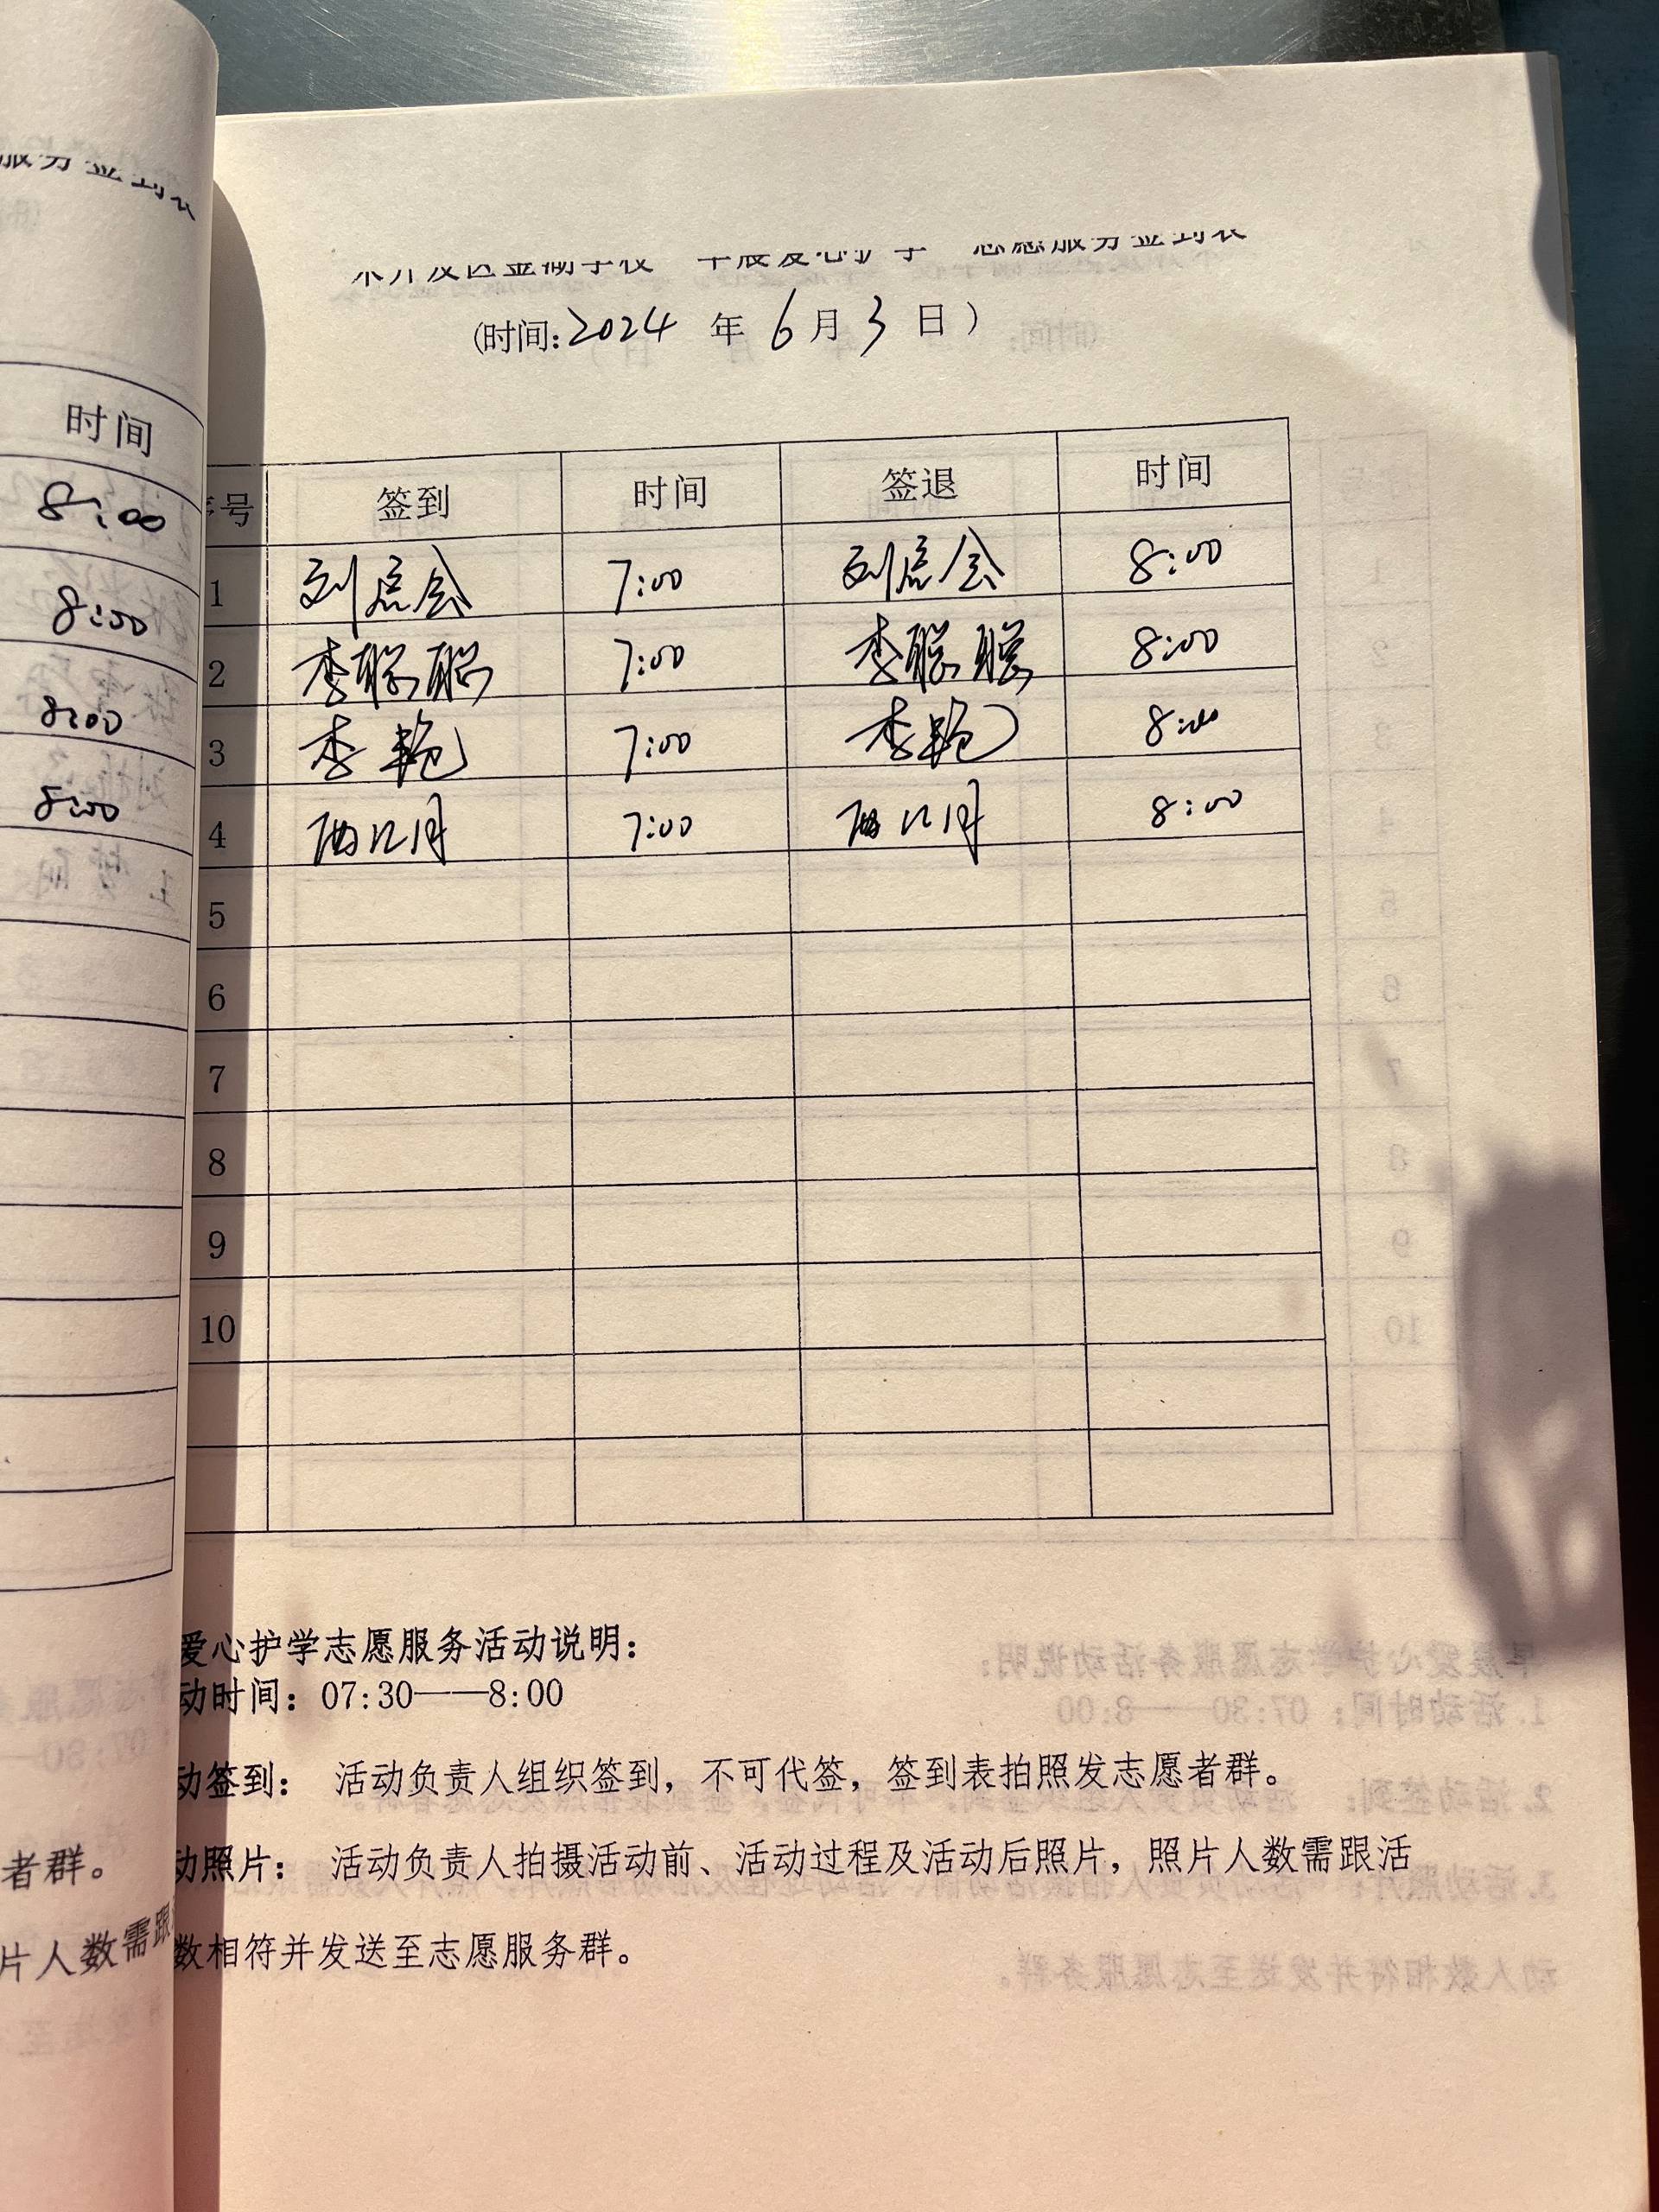 服务签到表
时间
8:00
8:00
8:00
8:00
者群。
片人数需跟
东开发区金湖学校 早晨爱心护学 志愿服务签到表
(时间:2024 年 6月3 日)
序号 签到 时间 签退 时间
1 7:00 8:00
2 李聪聪 7:00 李聪聪 8:00
3 李艳 7:00 李艳 8:00
4 7:00 8:00
5
6
7
8
9
10
爱心护学志愿服务活动说明:
动时间: 07:30——8:00
动签到: 活动负责人组织签到, 不可代签, 签到表拍照发志愿者群。
动照片: 活动负责人拍摄活动前、活动过程及活动后照片, 照片人数需跟活
数相符并发送至志愿服务群。